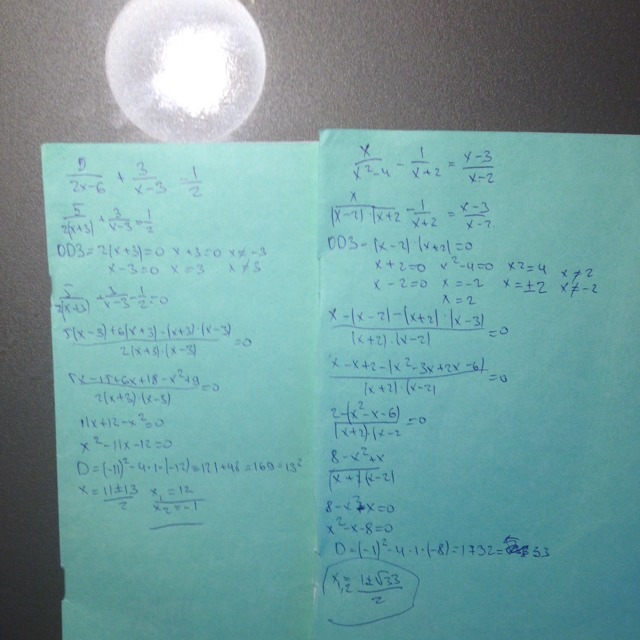 5/(2x-6) + 3/(x-3) = 1/2
5/(2(x+3)) + 3/(x-3) = 1/2
ОДЗ = 2(x+3)=0 x+3=0 x≠-3
x-3=0 x=3 x≠3
5/(2(x+3)) + 3/(x-3) - 1/2 = 0
(5(x-3)+6(x+3)-(x+3)·(x-3))/(2(x+3)·(x-3)) = 0
(5x-15+6x+18-x²+9)/(2(x+3)(x-3)) = 0
11x+12-x²=0
x²-11x-12=0
D=(-11)²-4·1·(-12)=121+48=169=13²
x=(11±13)/2 x₁=12
x₂=-1
x/(x²-4) - 1/(x+2) = (x-3)/(x-2)
x/((x-2)·(x+2) - 1/(x+2) = (x-3)/(x-2)
ОДЗ = (x-2)·(x+2)=0
x+2=0 x²-4=0 x²=4 x≠2
x-2=0 x=-2 x=±2 x≠-2
x=2
(x-(x-2)-(x+2)·(x-3))/((x+2)·(x-2)) = 0
(x-x+2-(x²-3x+2x-6))/((x+2)·(x-2)) = 0
(2-(x²-x-6))/((x+2)·(x-2) = 0
(8-x²+x)/((x+2)·(x-2)
8-x²+x=0
x²-x-8=0
D=(-1)²-4·1·(-8)=1+32=33
x₁₂=(1±√33)/2